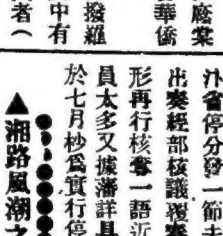 華僑
撥羅
中有
者（
汴省停分發一節
出奏經部核議覆奏
形再行核奪一語近
員太多又據藩詳具
於七月杪爲實行停
▲湘路風潮之